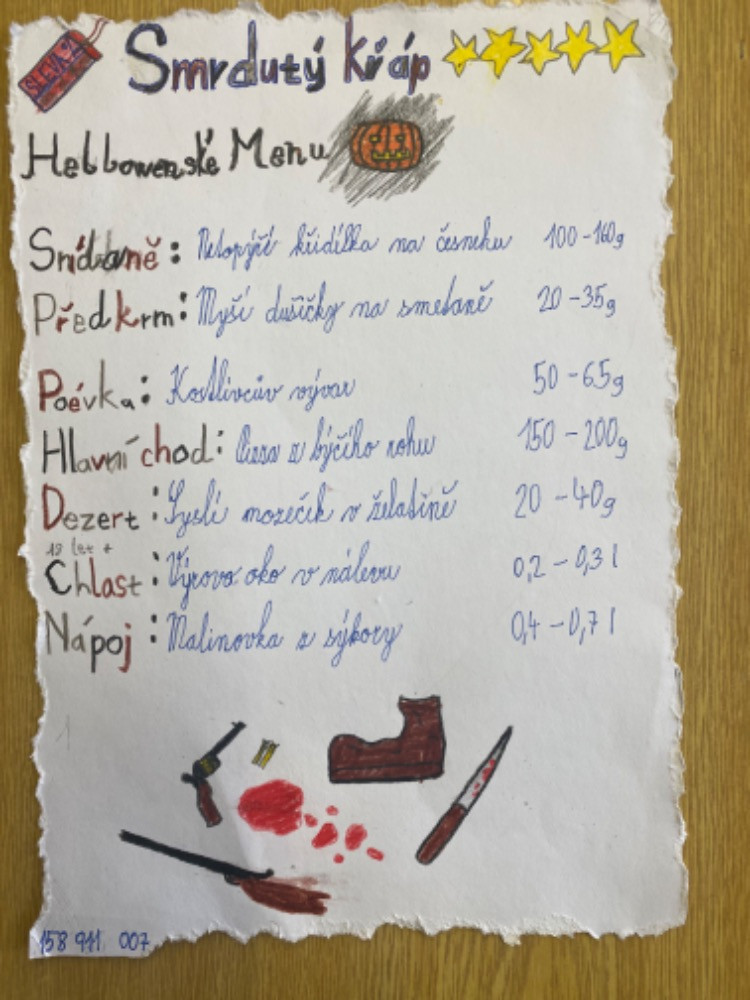 SLEVA % Smrdutý křáp
Hellowenské Menu
Snídaně: Netopýří křidílka na česneku 100-160g
Předkrm: Myší dušičky na smetaně 20-35g
Poévka: Kostlivcův vývar 50-65g
Hlavní chod: z býčího rohu 150-200g
Dezert: Syslí mozeček v želatině 20-40g
18 let +
Chlast: Výrovo oko v nálevu 0,2-0,3 l
Nápoj: Malinovka z sýkory 0,4-0,7 l
158 911 007